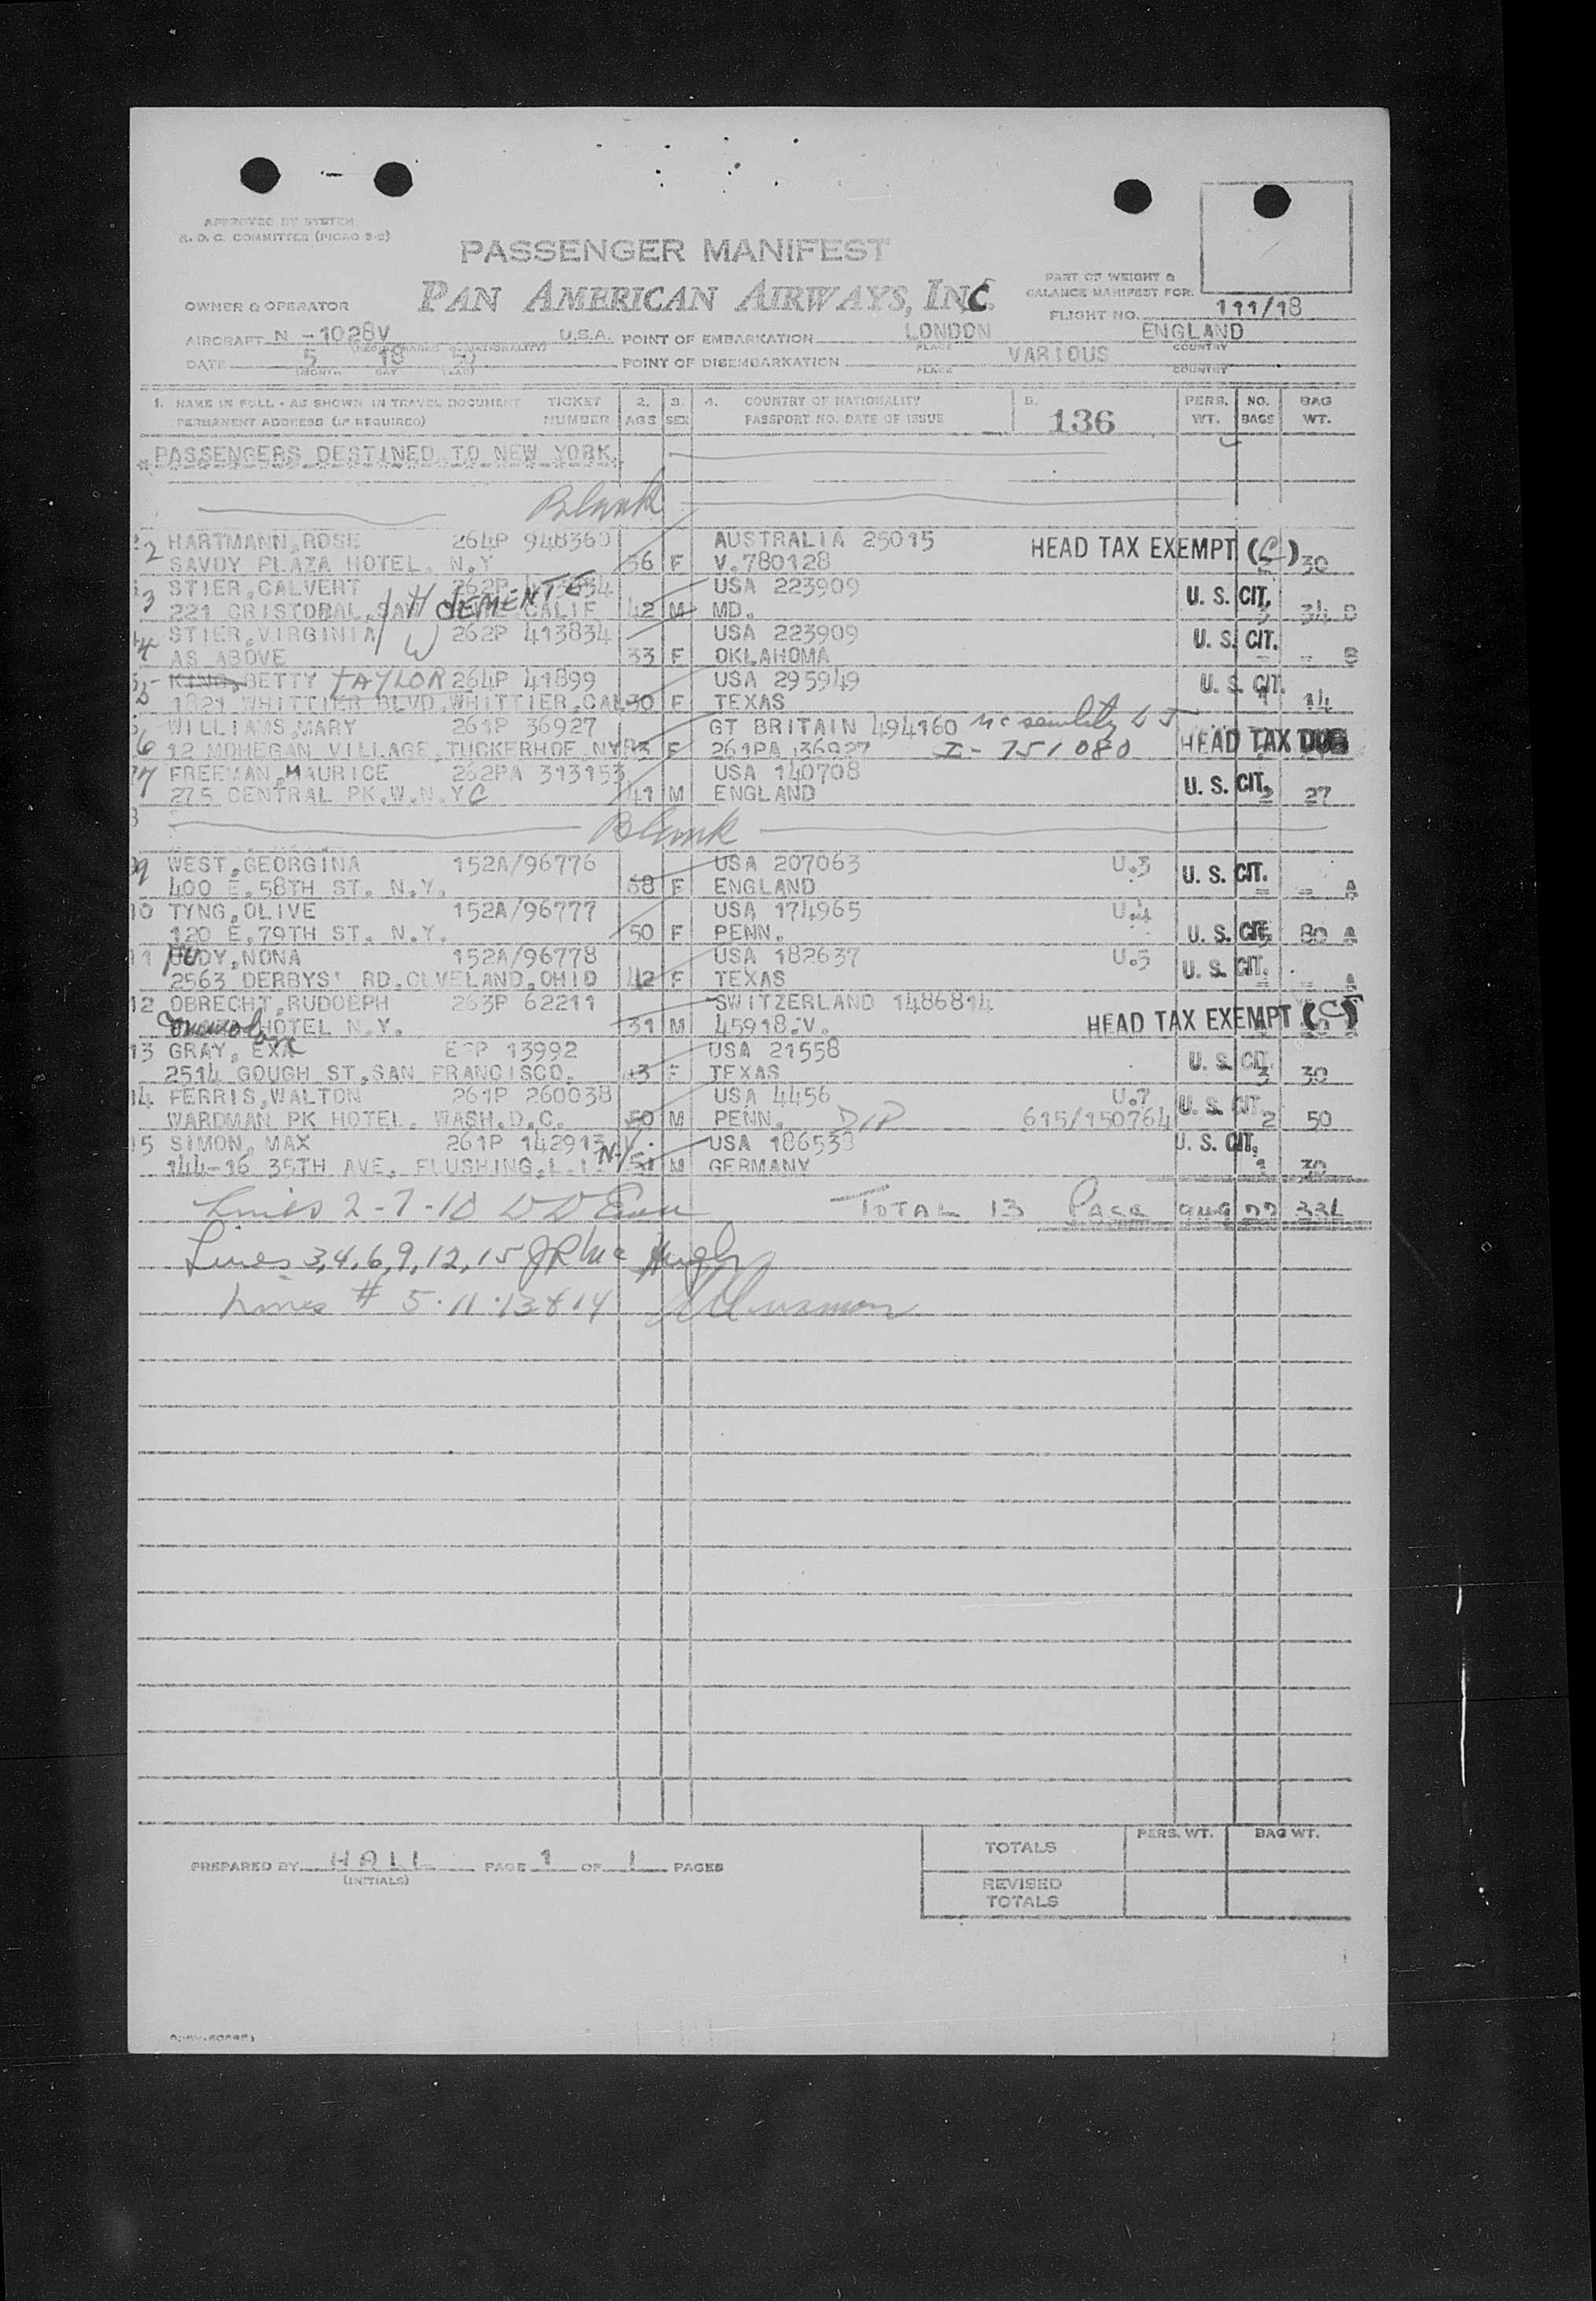 APPROVED BY SYSTEM
A. O. C. COMMITTEE (PICAO 5-2)
PASSENGER MANIFEST
PAN AMERICAN AIRWAYS, INC.
OWNER & OPERATOR
PART OF WEIGHT &
BALANCE MANIFEST FOR:
FLIGHT NO. 111/18
AIRCRAFT N -1028V U.S.A. POINT OF EMBARKATION LONDON ENGLAND
PLACE COUNTRY
DATE 5 18 50 POINT OF DISEMBARKATION VARIOUS
(MONTH) DAY (YEAR) PLACE COUNTRY
1. NAME IN FULL - AS SHOWN IN TRAVEL DOCUMENT TICKET 2. 3. 4. COUNTRY OF NATIONALITY 5. PERS. NO. BAG
PERMANENT ADDRESS (IF REQUIRED) NUMBER AGE SEX PASSPORT NO. DATE OF ISSUE 136 WT. BAGS WT.
PASSENGERS DESTINED TO NEW YORK.
Blank
2 HARTMANN,ROSE 264P 948360 AUSTRALIA 25015 HEAD TAX EXEMPT (C)
SAVOY PLAZA HOTEL. N.Y 56 F V.780128 30
3 STIER,CALVERT 262P USA 223909 U. S. CIT.
221 CRISTOBAL,SAN CLEMENTE CALIF 42 M MD. 3 34 B
4 STIER,VIRGINIA / W 262P 413834 USA 223909 U. S. CIT.
AS ABOVE 33 F OKLAHOMA - - B
5 KING,BETTY TAYLOR 264P 41899 USA 295949 U. S. CIT.
1821 WHITTIER BLVD,WHITTIER,CAL 30 F TEXAS 1 14
6 WILLIAMS,MARY 261P 36927 GT BRITAIN 494160
12 MOHEGAN VILLAGE,TUCKERHOF,NY F 261PA 36927 I-751080 HEAD TAX DUE
7 FREEMAN,MAURICE 262PA 313153 USA 140708
275 CENTRAL PK.W.N.YC 41 M ENGLAND U. S. CIT. 2 27
Blank
9 WEST,GEORGINA 152A/96776 USA 207063 U.3 U. S. CIT.
400 E.58TH ST. N.Y. 68 F ENGLAND - - A
10 TYNG,OLIVE 152A/96777 USA 174965 U.4
120 E.79TH ST. N.Y. 50 F PENN. U. S. CIT. 80 A
11 JUDY,NONA 152A/96778 USA 182637 U.5 U. S. CIT.
2563 DERBYS' RD.CLVELAND,OHIO 42 F TEXAS A
12 OBRECHT,RUDOLPH 263P 62211 SWITZERLAND 1486814
HOTEL N.Y. 31 M 45918.V. HEAD TAX EXEMPT (C)
13 GRAY, EXA 13992 USA 21558 U. S. CIT.
2514 GOUGH ST,SAN FRANCISCO. 43 F TEXAS 3 30
14 FERRIS,WALTON 261P 260038 USA 4456 U.7 U. S. CIT.
WARDMAN PK HOTEL. WASH.D.C. 50 M PENN. DIP 615/150764 2 50
15 SIMON, MAX 261P 142913 USA 186538 U. S. CIT.
144-16 35TH AVE. FLUSHING,L.I. N.Y. 51 M GERMANY 1 30
Lines 2-7-10
TOTAL 13 PASS
Lines 3,4,6,9,12,15
Lines # 5-11-13 & 14
PREPARED BY HALL PAGE 1 OF 1 PAGES
(INITIALS)
PERS. WT. BAG WT.
TOTALS
REVISED
TOTALS